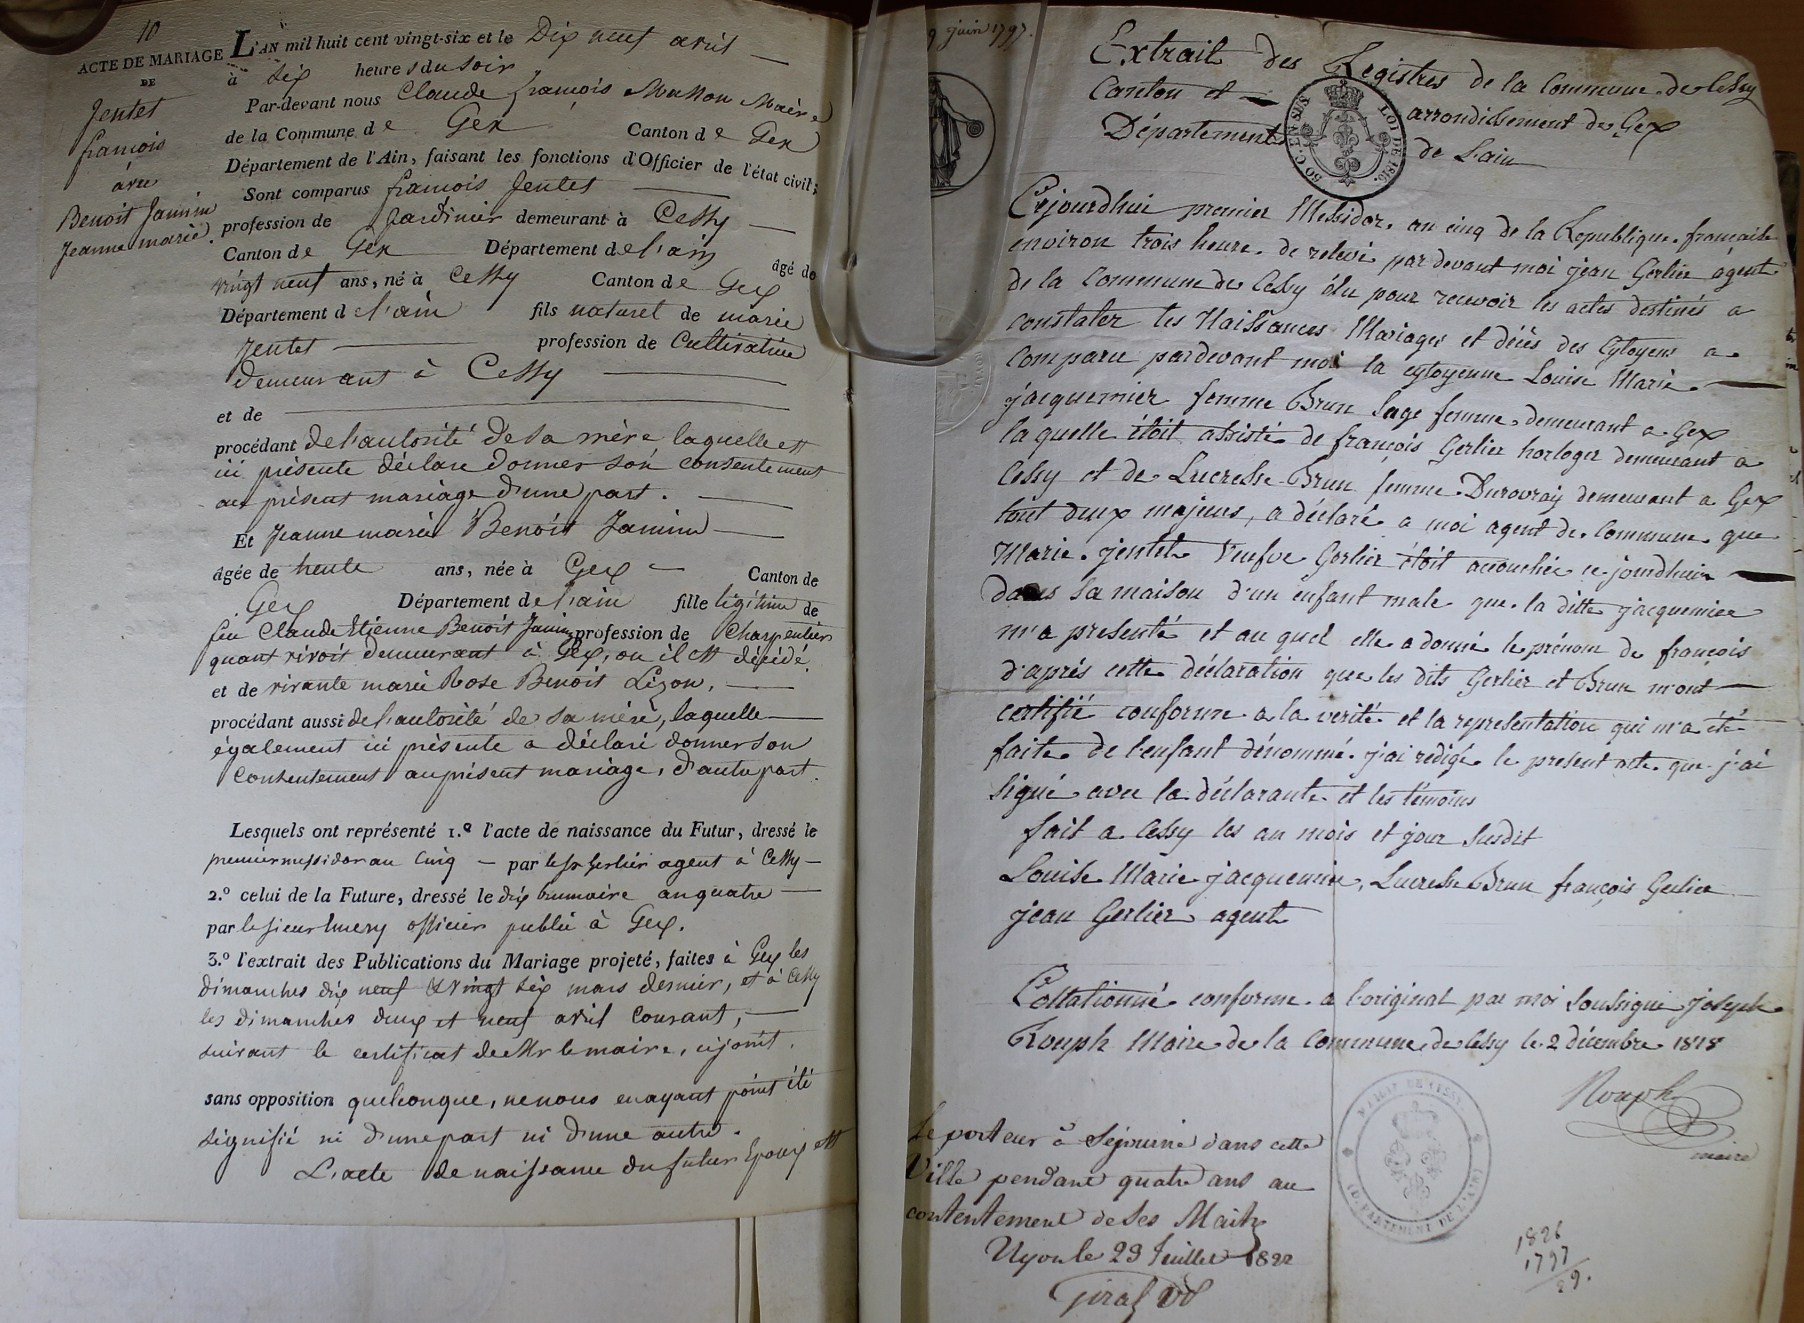 10
ACTE DE MARIAGE
DE
Jentet
françois
avec
Benoit Janin
Jeanne marie.
L'AN mil huit cent vingt-six et le Dix neuf avril
à six heures du soir
Par-devant nous Claude françois Maire
de la Commune de Gex Canton de Gex
Département de l'Ain, faisant les fonctions d'Officier de l'état civil;
Sont comparus françois Jentet
profession de Jardinier demeurant à Cessy
Canton de Gex Département de l'ain âgé de
vingt neuf ans, né à Cessy Canton de Gex
Département de l'ain fils naturel de marie
Jentet profession de Cultivatrice
demeurant à Cessy
et de
procédant de l'autorité de sa mère laquelle est
ici présente déclare donner son consentement
au présent mariage d'une part.
Et Jeanne marie Benoit Janin
âgée de trente ans, née à Gex Canton de
Gex Département de l'ain fille légitime de
feu Claude Etienne Benoit Janin profession de Charpentier
quant vivoit demeurant à Gex, ou il est décédé.
et de vivante marie Rose Benoit Lizon,
procédant aussi de l'autorité de sa mère, laquelle
également ici présente a déclaré donner son
Consentement au présent mariage, d'autre part.
Lesquels ont représenté 1.º l'acte de naissance du Futur, dressé le
premier messidor an Cinq par le sr Gerlier agent à Cessy
2.º celui de la Future, dressé le dix brumaire an quatre
par le sieur officier public à Gex.
3.º l'extrait des Publications du Mariage projeté, faites à Gex les
dimanches dix neuf & vingt six mars dernier, et à Cessy
les dimanches deux et neuf avril courant,
suivant le certificat de Mr le maire, cijoint.
sans opposition quelconque, ne nous en ayant point été
signifié ni d'une part ni d'une autre.
L'acte de naissance du futur Epoux est
9 juin 1797.
Extrait des Registres de la Commune de Cessy
Canton et arrondissement de Gex
Département de L'ain
50 C. EN SUS
LOI DE 1816.
Cejourdhui premier Messidor an cinq de la Republique française
environ trois heure de relevé pardevant moi jean Gerlier agent
de la Commune de Cessy élu pour recevoir les actes destinés a
constater les Naissances Mariages et décès des Cytoyens a
comparu pardevant moi la cytoyenne Louise Marie
jacquemier femme Brun Sage femme demeurant a Gex
laquelle étoit assisté de françois Gerlier horloger demeurant a
Cessy et de Lucresse Brun femme Durovray demeurant a Gex
tout deux majeurs, a déclaré a moi agent de Commune que
Marie jentet Veufve Gerlier étoit accouchée ce jourdhui
dans sa maison d'un enfant male que la ditte jacquemier
m'a presenté et au quel elle a donné le prénom de françois
d'après cette déclaration que les dits Gerlier et Brun m'ont
certifié conforme a la verité et la representation qui m'a été
faite de l'enfant dénommé j'ai rédigé le present acte que j'ai
signé avec la déclarante et les témoins
fait a Cessy les an mois et jour Susdit
Louise Marie jacquemier, Lucresse Brun françois Gerlier
jean Gerlier agent
Collationné conforme a l'original par moi Soussigné joseph
Rouph Maire de la Commune de Cessy le 2 décembre 1818
Rouph
maire
MAIRIE DE CESSY.
(DÉPARTEMENT DE L'AIN)
Le porteur à Séjourné dans cette
Ville pendant quatre ans au
contentement de Ses Maitr
Nyon le 29 Juillet 1822
1826
1797
29.